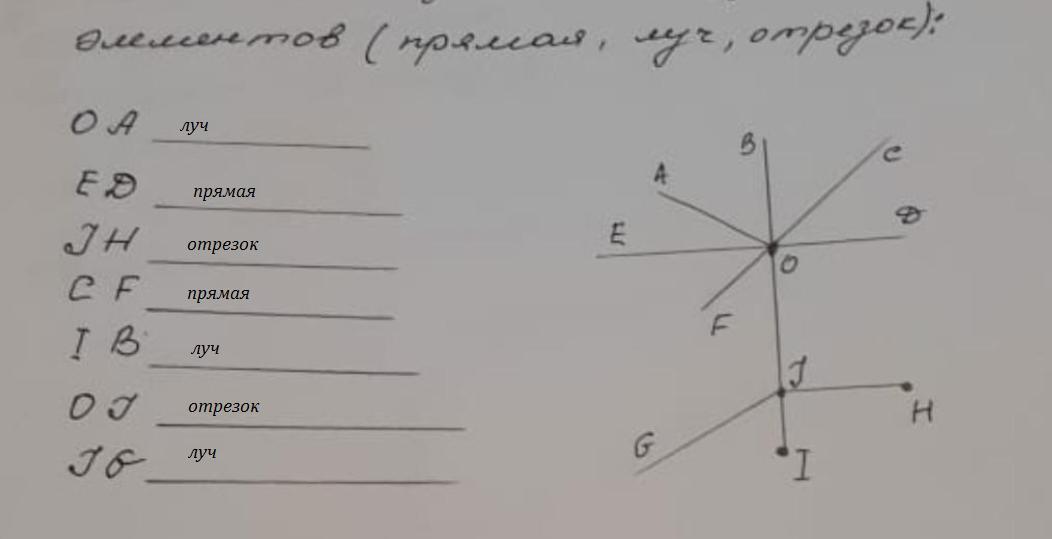 элементов (прямая, луч, отрезок):
OA луч
ED прямая
JH отрезок
CF прямая
IB луч
OJ отрезок
JG луч
B
C
A
D
E
O
F
J
H
G
I